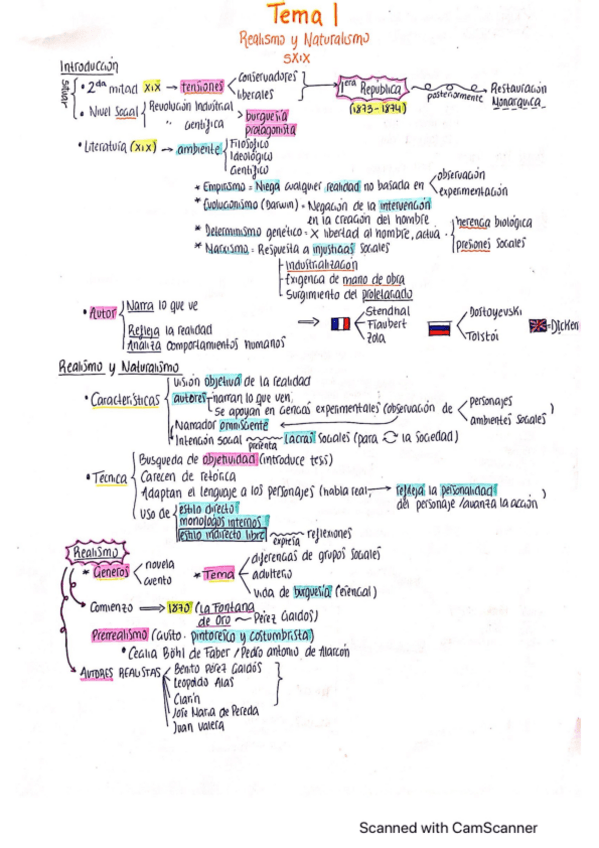 Tema 1
Realismo y Naturalismo
SXIX
Introducción
situar
• 2da mitad XIX → tensiones
conservadores
liberales
1era República
(1873-1874)
posteriormente
Restauración
Monarquica
• Nivel Social
Revolución Industrial
" Científica
burguesía
protagonista
• Literatura (XIX) → ambiente
Filosófico
Ideológico
Científico
* Empirismo = Niega cualquier realidad no basada en
observación
experimentación
* Evolucionismo (Darwin) = Negación de la intervención
en la creación del hombre
* Determinismo genético = X libertad al hombre, actúa
herencia biológica
presiones sociales
* Marxismo = Respuesta a injusticias sociales
Industrialización
Exigencia de mano de obra
Surgimiento del proletariado
• Autor
Narra lo que ve
Refleja la realidad
Analiza comportamientos humanos
Stendhal
Flaubert
Zola
Dostoyevski
Tolstói
=Dicken
Realismo y Naturalismo
• Características
visión objetiva de la realidad
autores
narran lo que ven
se apoyan en ciencias experimentales (observación de
personajes
ambientes sociales
)
Narrador omnisciente
Intención social presenta lacras sociales (para la sociedad)
• Técnica
Busqueda de objetividad (introduce tess)
Carecen de retórica
Adaptan el lenguaje a los personajes (habla real,
refleja la personalidad
del personaje/avanza la acción
)
Uso de
estilo directo
monologos internos
estilo indirecto libre
expresa
reflexiones
Realismo
* Géneros
novela
cuento
* Tema
diferencias de grupos sociales
adulterio
vida de burguesía (esencial)
Comienzo → 1870 (La Fontana
de Oro ~ Pérez Galdós)
Prerrealismo (Gusto. pintoresco y costumbrista)
• Cecilia Böhl de Faber / Pedro antonio de Alarcón
AUTORES REALISTAS
Benito Pérez Galdós
Leopoldo Alas
Clarín
Jose Maria de Pereda
Juan Valera
Scanned with CamScanner